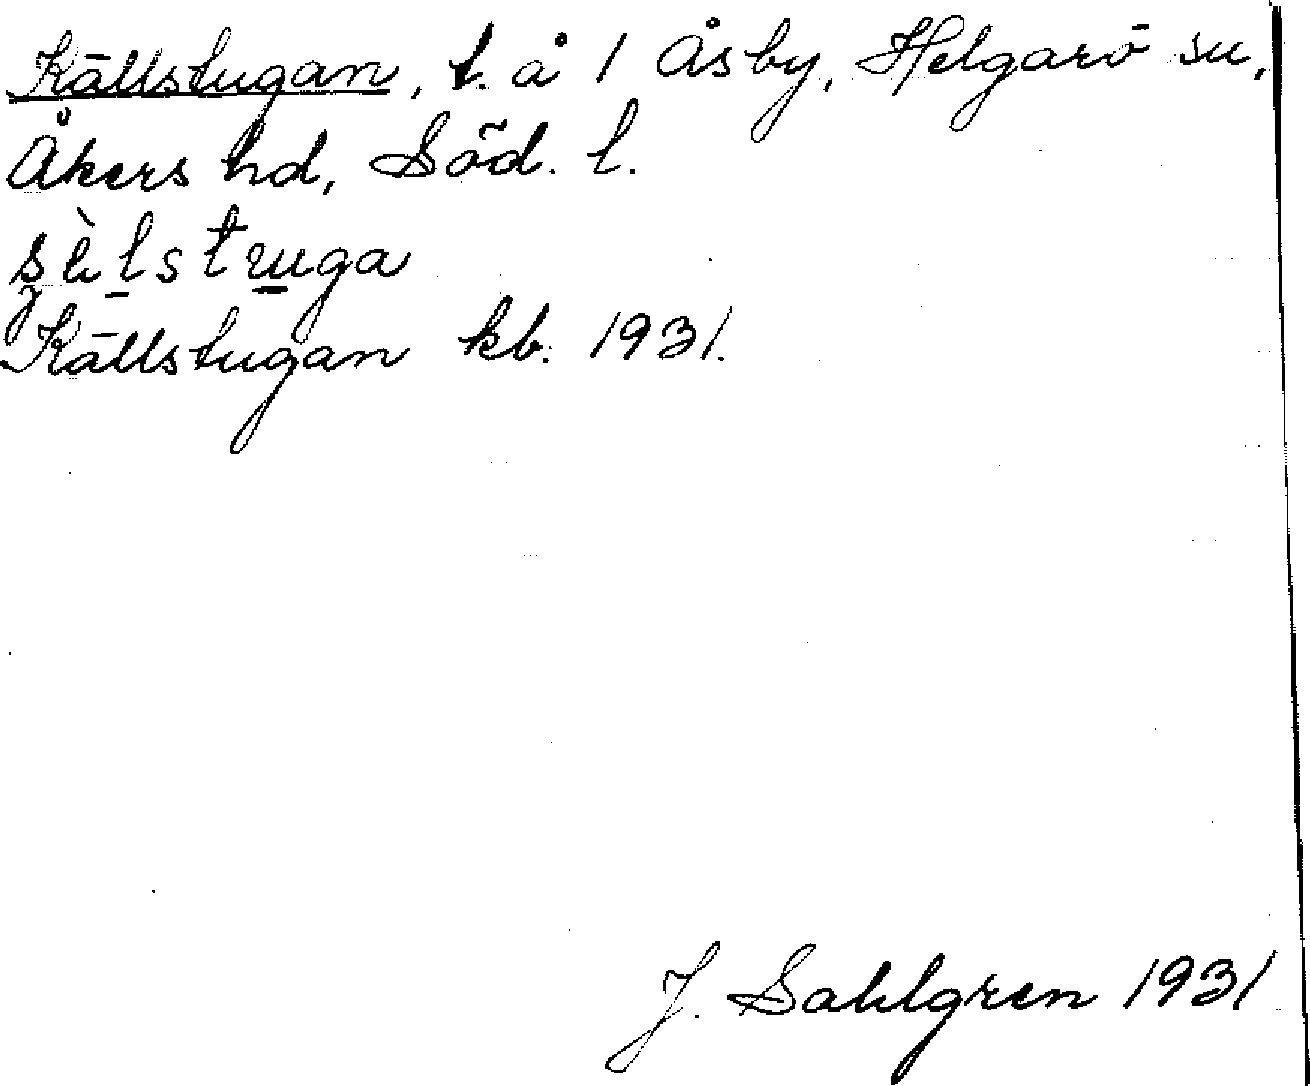 Källstugan, t. å 1 Åsby, Helgarö sn,
Åkers hd, Söd. l.
Källstugan kb. 1931.
J. Sahlgren 1931